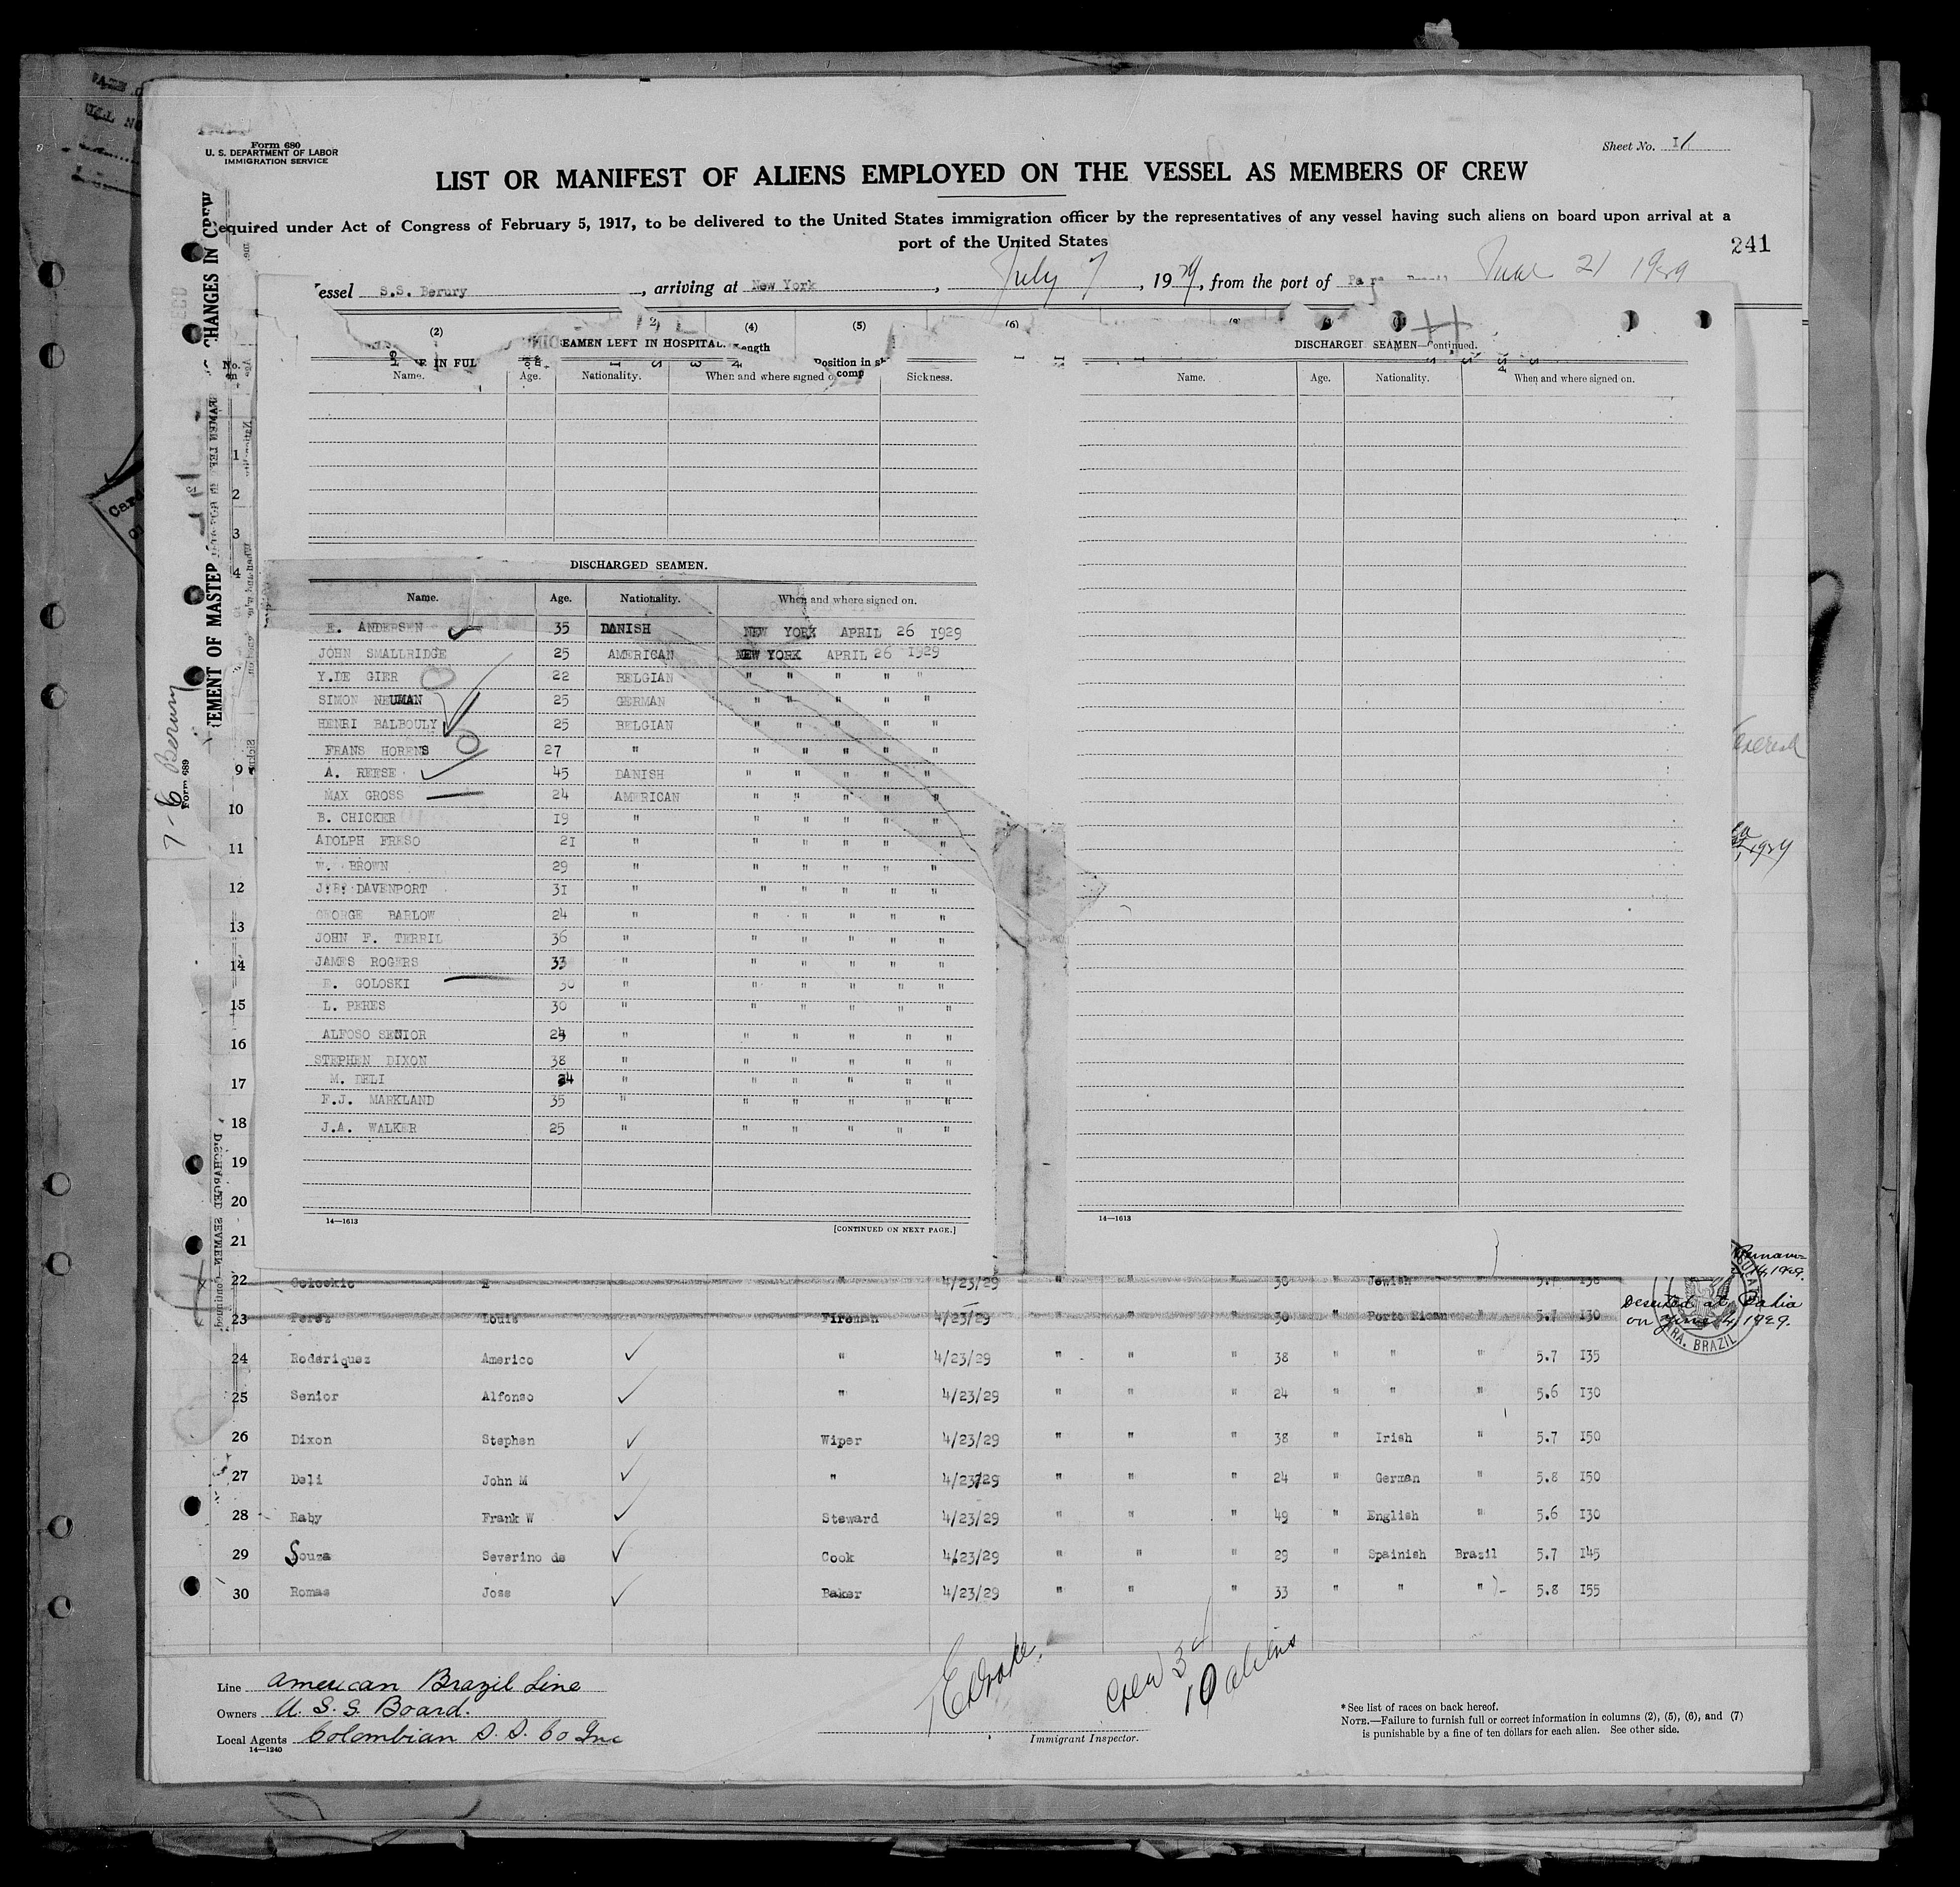 Form 680
U. S. DEPARTMENT OF LABOR
IMMIGRATION SERVICE
Sheet No.
LIST OR MANIFEST OF ALIENS EMPLOYED ON THE VESSEL AS MEMBERS OF CREW
equired under Act of Congress of February 5, 1917, to be delivered to the United States immigration officer by the representatives of any vessel having such aliens on board upon arrival at a
port of the United States
241
essel S.S. Berury, arriving at New York, July 7, 1929, from the port of
(2) (4) (5) (6)
EAMEN LEFT IN HOSPITAL.
Name. Age. Nationality. When and where signed Sickness.
DISCHARGED SEAMEN.
Name. Age. Nationality. When and where signed on.
E. ANDERSEN 35 DANISH NEW YORK APRIL 26 1929
JOHN SMALLRIDGE 25 AMERICAN NEW YORK APRIL 26 1929
Y.DE GIER 22 BELGIAN " " " " "
SIMON NEUMAN 25 GERMAN " " " " "
HENRI BALBOULY 25 BELGIAN " " " " "
FRANS HORENS 27 " " " " " "
A. REESE 45 DANISH " " " " "
MAX GROSS 24 AMERICAN " " " " "
B. CHICKER 19 " " " " " "
ADOLPH FRESO 21 " " " " " "
W. BROWN 29 " " " " " "
DAVENPORT 31 " " " " " "
GEORGE BARLOW 24 " " " " " "
JOHN F. TERRIL 36 " " " " " "
JAMES ROGERS 33 " " " " " "
E. GOLOSKI 30 " " " " " "
L. PERES 30 " " " " " "
ALFOSO SENIOR 24 " " " " " "
STEPHEN DIXON 38 " " " " " "
M. DELI 24 " " " " " "
F.J. MARKLAND 35 " " " " " "
J.A. WALKER 25 " " " " " "
14—1613 [CONTINUED ON NEXT PAGE.]
DISCHARGED SEAMEN—Continued.
Name. Age. Nationality. When and where signed on.
14—1613
1
2
3
4
9
10
11
12
13
14
15
16
17
18
19
20
21
22 Goloskie E " 4/23/29 " " " 30 Jewish 5.7 138
23 Perez Louis Fireman 4/23/29 " " " 30 " Porto Rican " 5.7 130 Deserted at Bahia
on June 4, 1929.
24 Roderiquez Americo " 4/23/29 " " " 38 " " " 5.7 135
25 Senior Alfonso " 4/23/29 " " " 24 " " " 5.6 130
26 Dixon Stephen Wiper 4/23/29 " " " 38 " Irish " 5.7 150
27 Deli John M " 4/23/29 " " " 24 " German " 5.8 150
28 Raby Frank W Steward 4/23/29 " " " 49 " English " 5.6 130
29 Souza Severino de Cook 4/23/29 " " " 29 " Spainish Brazil 5.7 145
30 Romas Jose Baker 4/23/29 " " " 33 " " " 5.8 155
BRAZIL
Line American Brazil Line
Owners U. S. S. Board.
Local Agents Colombian S. S. Co Inc
14—1240
Crew 34
10 aliens
Immigrant Inspector.
*See list of races on back hereof.
NOTE.—Failure to furnish full or correct information in columns (2), (5), (6), and (7)
is punishable by a fine of ten dollars for each alien. See other side.
CHANGES IN CREW
EMENT OF MASTER
Form 689
7-6 Berury
DISCHARGED SEAMEN—Continued